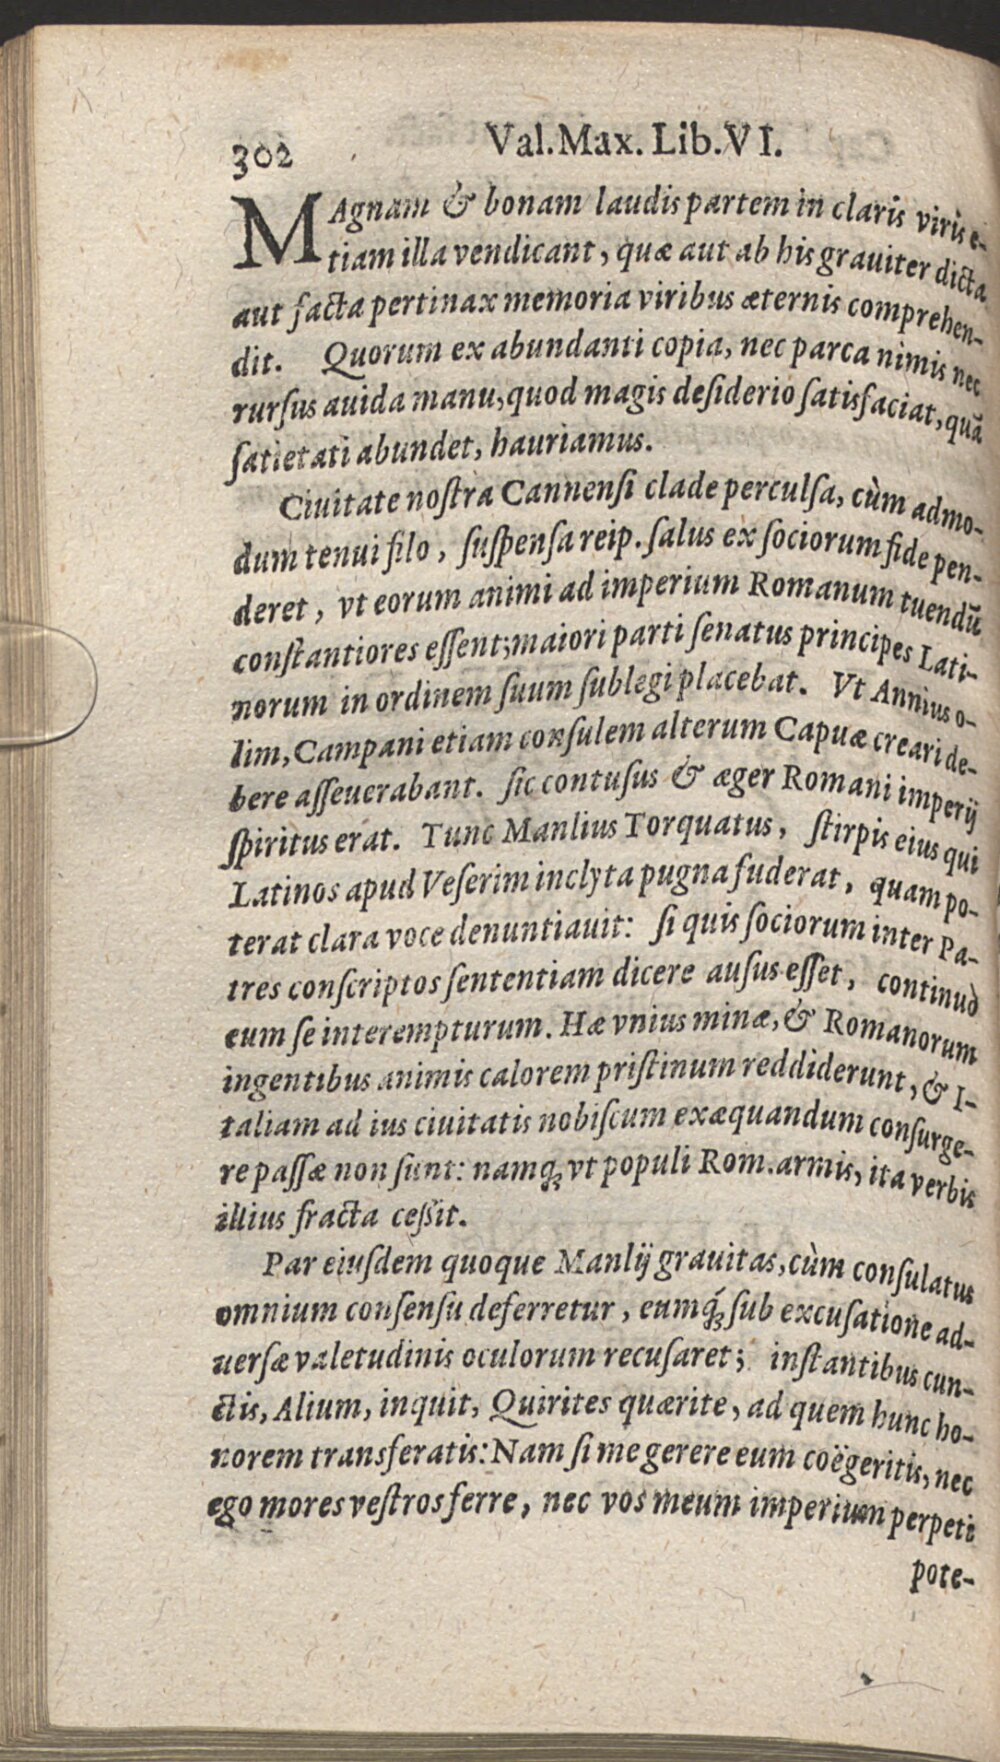 302 Val. Max. Lib. VI.
MAgnam & bonam laudis partem in claris viris e-
tiam illa vendicant, quæ aut ab his grauiter dicta
aut facta pertinax memoria viribus æternis comprehen-
dit. Quorum ex abundanti copia, nec parca nimis nec
rurſus auida manu, quod magis deſiderio ſatisfaciat, quā
ſatietati abundet, hauriamus.
Ciuitate noſtra Cannenſi clade perculſa, cùm admo-
dum tenui filo, ſuſpenſa reip. ſalus ex ſociorum fide pen-
deret, vt eorum animi ad imperium Romanum tuendū
conſtantiores eſſent; maiori parti ſenatus principes Lati-
norum in ordinem ſuum ſublegi placebat. Vt Annius o-
lim, Campani etiam conſulem alterum Capuæ creari de-
bere aſſeuerabant. ſic contuſus & æger Romani imperij
ſpiritus erat. Tunc Manlius Torquatus, ſtirpis eius qui
Latinos apud Veſerim inclyta pugna fuderat, quam po-
terat clara voce denuntiauit: ſi quis ſociorum inter Pa-
tres conſcriptos ſententiam dicere auſus eſſet, continuò
eum ſe interempturum. Hæ vnius minæ, & Romanorum
ingentibus animis calorem priſtinum reddiderunt, & I-
taliam ad ius ciuitatis nobiſcum exæquandum conſurge-
re paſſæ non ſunt: namq; vt populi Rom. armis, ita verbis
illius fracta ceſſit.
Par eiuſdem quoque Manlij grauitas, cùm conſulatus
omnium conſenſu deferretur, eumq́; ſub excuſatione ad-
uerſæ valetudinis oculorum recuſaret; inſtantibus cun-
ctis, Alium, inquit, Quirites quærite, ad quem hunc ho-
norem transferatis: Nam ſi me gerere eum coëgeritis, nec
ego mores veſtros ferre, nec vos meum imperium perpeti
pote-